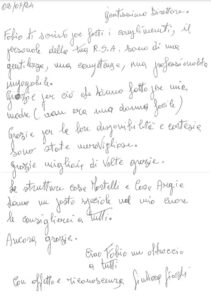 03/07/24
Gentilissimo Direttore.
Fabio ti scrivo per farti i complimenti, il
personale della tua R.S.A. sono di una
gentilezza, una competenza, una professionalità
impagabile.
Grazie per ciò che hanno fatto per mia
madre (non era una donna facile)
Grazie per la loro disponibilità e cortesia
sono state meravigliose.
Grazie migliaia di volte grazie.
Le strutture Casa Mortelli e Casa Argia
hanno un posto speciale nel mio cuore
le consiglierei a tutti.
Ancora grazie.
Ciao Fabio un abbraccio
a tutti
Con affetto e riconoscenza